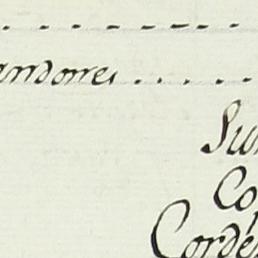 andorres . . . .
Su
Co
Corde